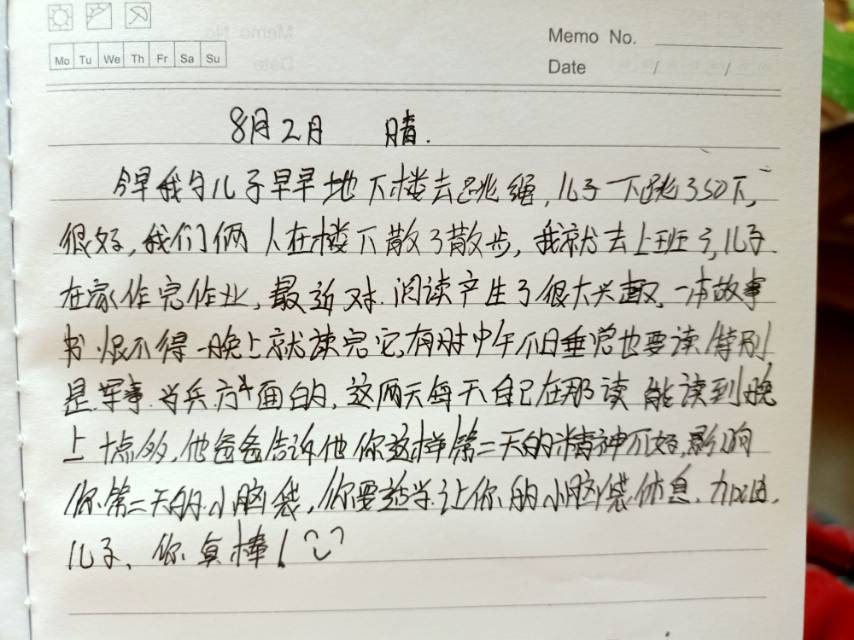 Memo No.
Mo Tu We Th Fr Sa Su
Date / /
8月2月 晴.
今早我与儿子早早地下楼去跳绳,儿子一下跳350下,
很好,我们俩人在楼下散了散步,我就去上班了,儿子
在家作完作业,最近对阅读产生了很大兴趣,一本故事
书恨不得一晚上就读完它,有时中午不睡觉也要读特别
是军事当兵方面的,这两天每天自己在那读能读到晚
上十点多,他爸爸告诉他你这样第二天的精神不好,影响
你第二天的小脑袋,你要适当让你的小脑袋休息.加油.
儿子、你真棒!